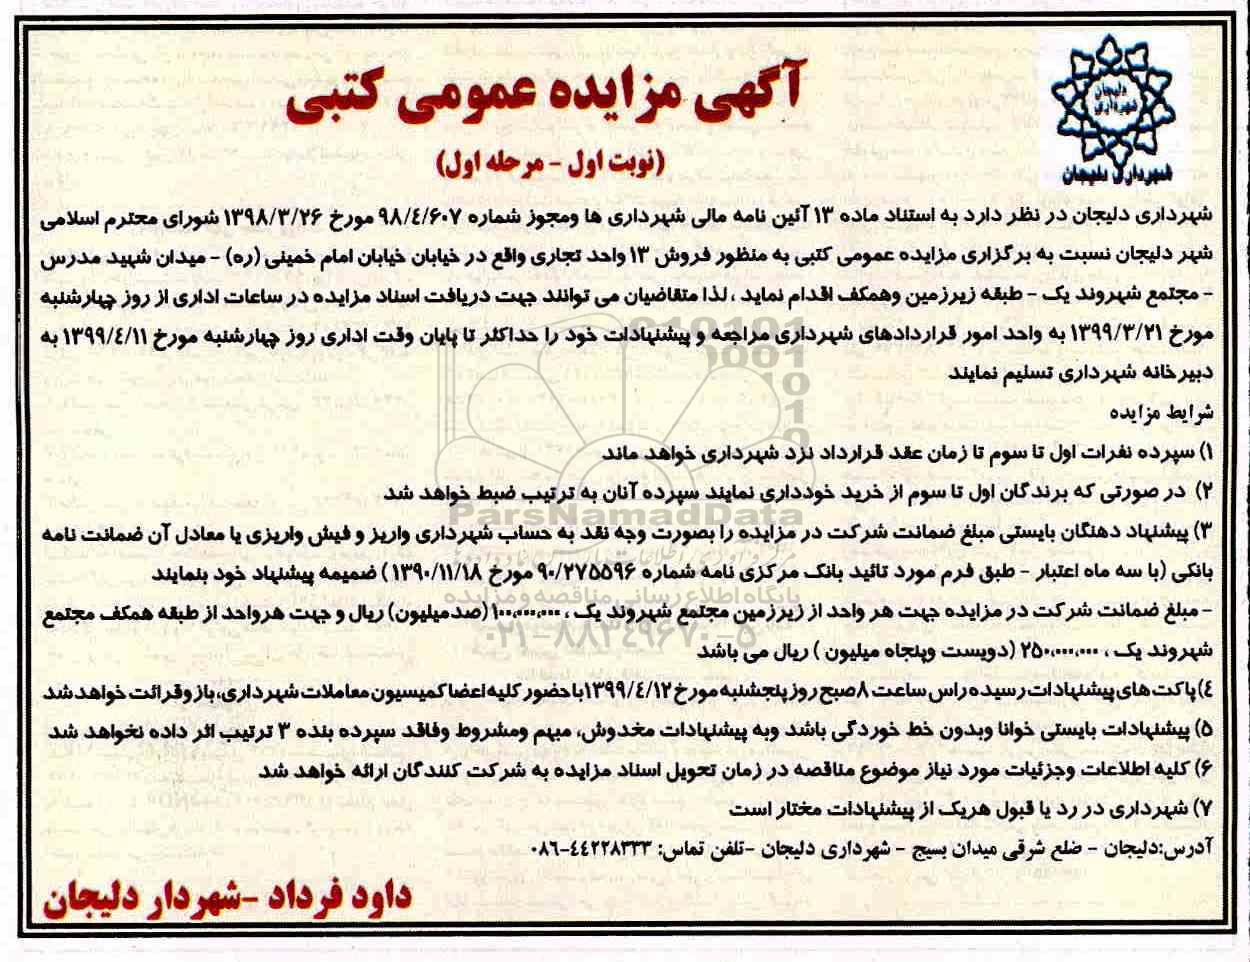 آگهی مزایده عمومی کتبی
(نوبت اول - مرحله اول)
دلیجان
شهرداری
شهرداری دلیجان
شهرداری دلیجان در نظر دارد به استناد ماده ۱۳ آئین نامه مالی شهرداری ها ومجوز شماره ۹۸/٤/۶۰۷ مورخ ۱۳۹۸/۳/۲۶ شورای محترم اسلامی
شهر دلیجان نسبت به برگزاری مزایده عمومی کتبی به منظور فروش ۱۳ واحد تجاری واقع در خیابان خیابان امام خمینی (ره) - میدان شهید مدرس
- مجتمع شهروند یک - طبقه زیرزمین وهمکف اقدام نماید ، لذا متقاضیان می توانند جهت دریافت اسناد مزایده در ساعات اداری از روز چهارشنبه
مورخ ۱۳۹۹/۳/۲۱ به واحد امور قراردادهای شهرداری مراجعه و پیشنهادات خود را حداکثر تا پایان وقت اداری روز چهارشنبه مورخ ۱۳۹۹/٤/۱۱ به
دبیرخانه شهرداری تسلیم نمایند
شرایط مزایده
۱) سپرده نفرات اول تا سوم تا زمان عقد قرارداد نزد شهرداری خواهد ماند
۲) در صورتی که برندگان اول تا سوم از خرید خودداری نمایند سپرده آنان به ترتیب ضبط خواهد شد
۳) پیشنهاد دهنگان بایستی مبلغ ضمانت شرکت در مزایده را بصورت وجه نقد به حساب شهرداری واریز و فیش واریزی یا معادل آن ضمانت نامه
بانکی (با سه ماه اعتبار - طبق فرم مورد تائید بانک مرکزی نامه شماره ۹۰/۲۷۵۵۹۶ مورخ ۱۳۹۰/۱۱/۱۸ ) ضمیمه پیشنهاد خود بنمایند
- مبلغ ضمانت شرکت در مزایده جهت هر واحد از زیرزمین مجتمع شهروند یک ، ۱۰۰،۰۰۰،۰۰۰ (صدمیلیون) ریال و جهت هرواحد از طبقه همکف مجتمع
شهروند یک ، ۲۵۰،۰۰۰،۰۰۰ (دویست وپنجاه میلیون ) ریال می باشد
٤) پاکت های پیشنهادات رسیده راس ساعت ۸ صبح روز پنجشنبه مورخ ۱۳۹۹/٤/۱۲ با حضور کلیه اعضا کمیسیون معاملات شهرداری، باز و قرائت خواهد شد
۵) پیشنهادات بایستی خوانا وبدون خط خوردگی باشد وبه پیشنهادات مخدوش، مبهم ومشروط وفاقد سپرده بنده ۳ ترتیب اثر داده نخواهد شد
۶) کلیه اطلاعات وجزئیات مورد نیاز موضوع مناقصه در زمان تحویل اسناد مزایده به شرکت کنندگان ارائه خواهد شد
۷) شهرداری در رد یا قبول هریک از پیشنهادات مختار است
آدرس:دلیجان - ضلع شرقی میدان بسیج - شهرداری دلیجان -تلفن تماس: ٤٤۲۲۸۳۳۳-۰۸۶
داود فرداد -شهردار دلیجان
ParsNamadData
پایگاه اطلاع رسانی مناقصه و مزایده
۰۲۱-۸۸۳٤۹۶۷۰-۵